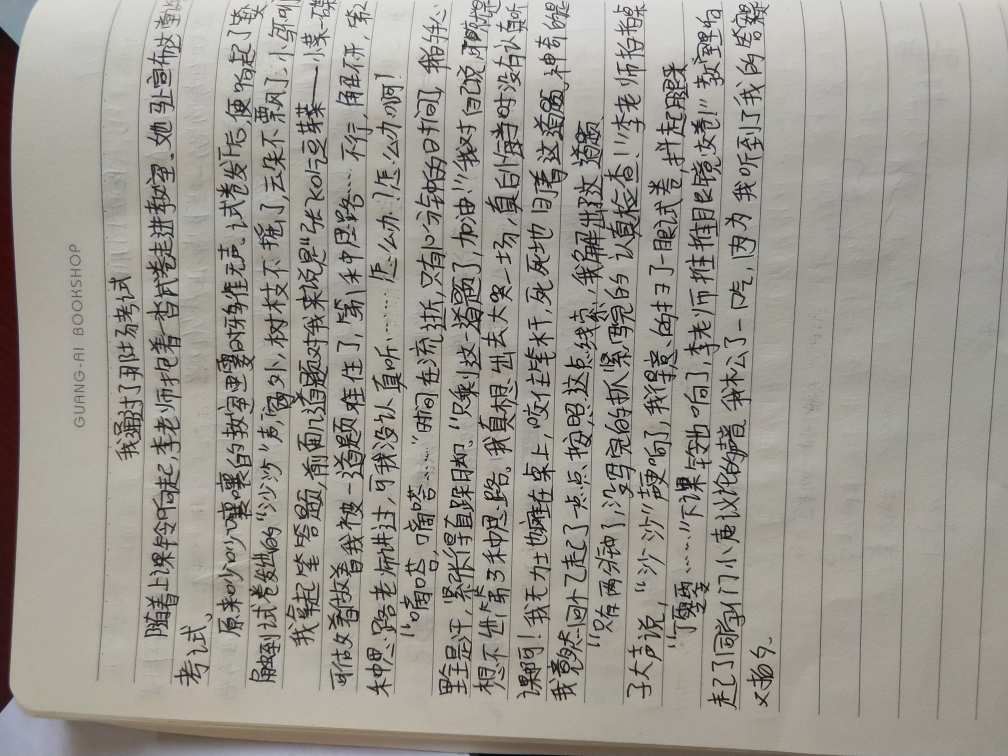 GUANG-AI BOOKSHOP
我通过了那场考试
随着上课铃响起,李老师抱着一沓试卷走进教室、她让宣布这堂
考试、
原来吵吵嚷嚷的教室霎时鸦雀无声、试卷发下后,便响起了
触到试卷发出的“沙沙沙”声,窗外,树枝不摇了,云朵不飘了,小鸟
我拿起笔答题,前面几道题对我来说是“张飞吃豆芽——小菜一碟
可做着做着我被一道题难住了,第一种思路……不行,解不开,第二
种思路老师讲过,可我没认真听……怎么办!怎么办啊!
“嘀嗒,嘀嗒……”时间在流逝,只有10分钟的时间了,我的手心
里全是汗,紧张得直跺脚、“只剩这一道题了,加油!”我对自己说,可
想不出第3种思路。我真想出去大哭一场,真自悔当时没有认真听
课啊!我无力地瘫在桌上,咬住笔杆,死死地盯着这道题,神奇的是
我竟然回忆起了一点点,按照这点线索,我解出了这道题
“只有两分钟了,没写完的抓紧,写完的认真检查!”李老师拍拍桌
子大声说,“沙沙沙”声更响了,我得意的扫了一眼试卷,
“丁零零……”下课铃响了,李老师推推眼镜“交卷!”教室里响
起了同学们小声议论的声音,我松了一口气,因为我听到了我的答案